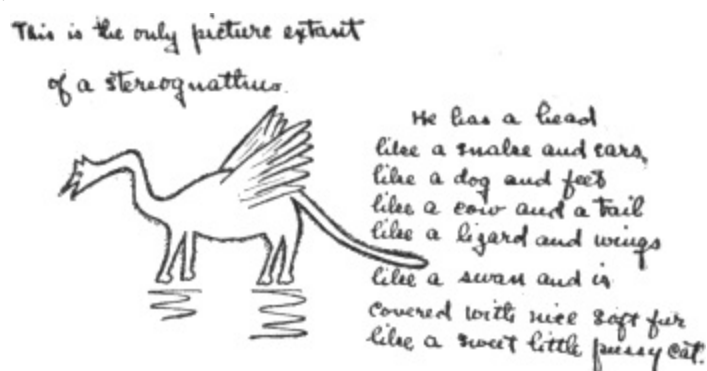 This is the only picture extant
of a stereognathus.
He has a head
like a snake and ears,
like a dog and feet
like a cow and a tail
like a lizard and wings
like a swan and is
covered with nice soft fur
like a sweet little pussy cat.